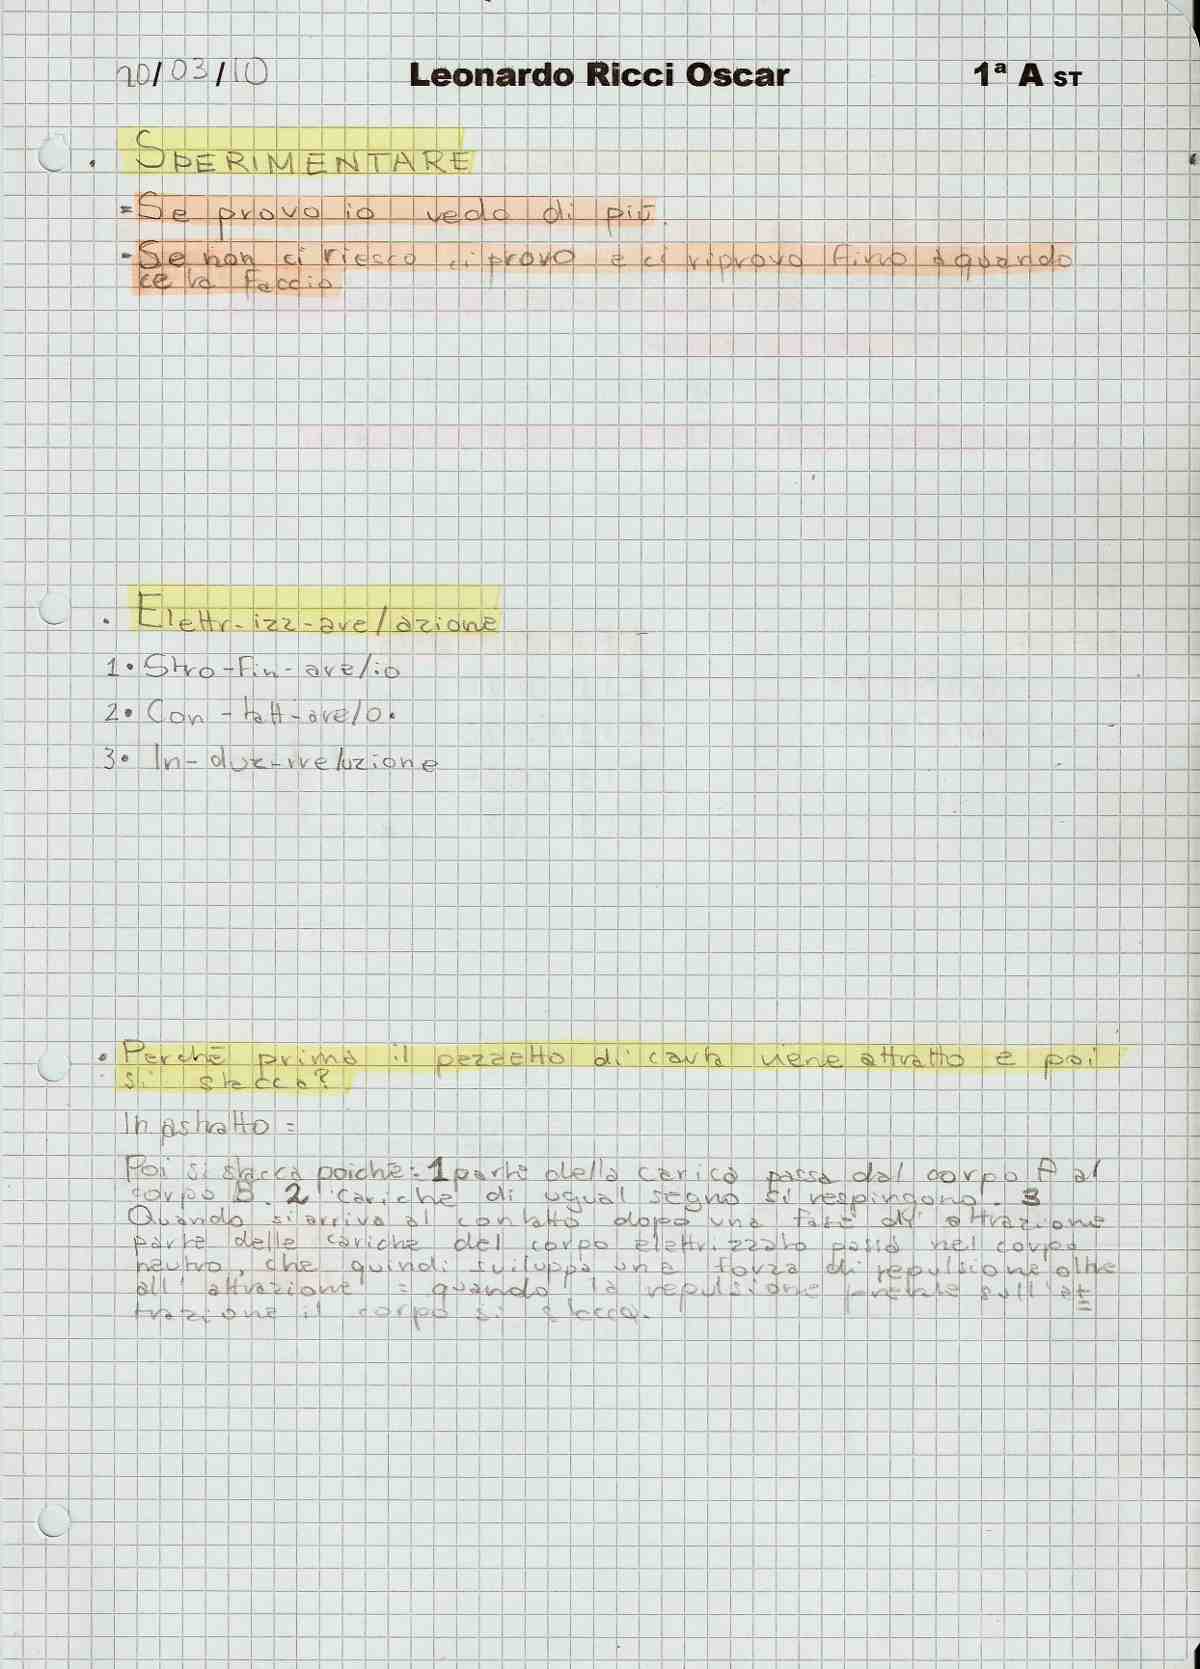 20/03/10 Leonardo Ricci Oscar 1ª A ST
. SPERIMENTARE
= Se provo io vedo di più.
- Se non ci riesco ci provo e ci riprovo fino a quando
ce la faccio
. Elettr-izz-are/azione
1• Stro-fin-are/io
2• Con-tatt-are/o.
3• In-duz-rre/uzione
• Perchè prima il pezzetto di carta viene attratto e poi
si stacca?
In astratto =
Poi si stacca poichè: 1 parte della carica passa dal corpo A al
corpo B. 2 cariche di ugual segno si respingono. 3
Quando si arriva al contatto dopo una fase di attrazione
parte delle cariche del corpo elettrizzato passa nel corpo
neutro, che quindi sviluppa una forza di repulsione oltre
all'attrazione = quando la repulsione prevale sull'at=
trazione il corpo si stacca.